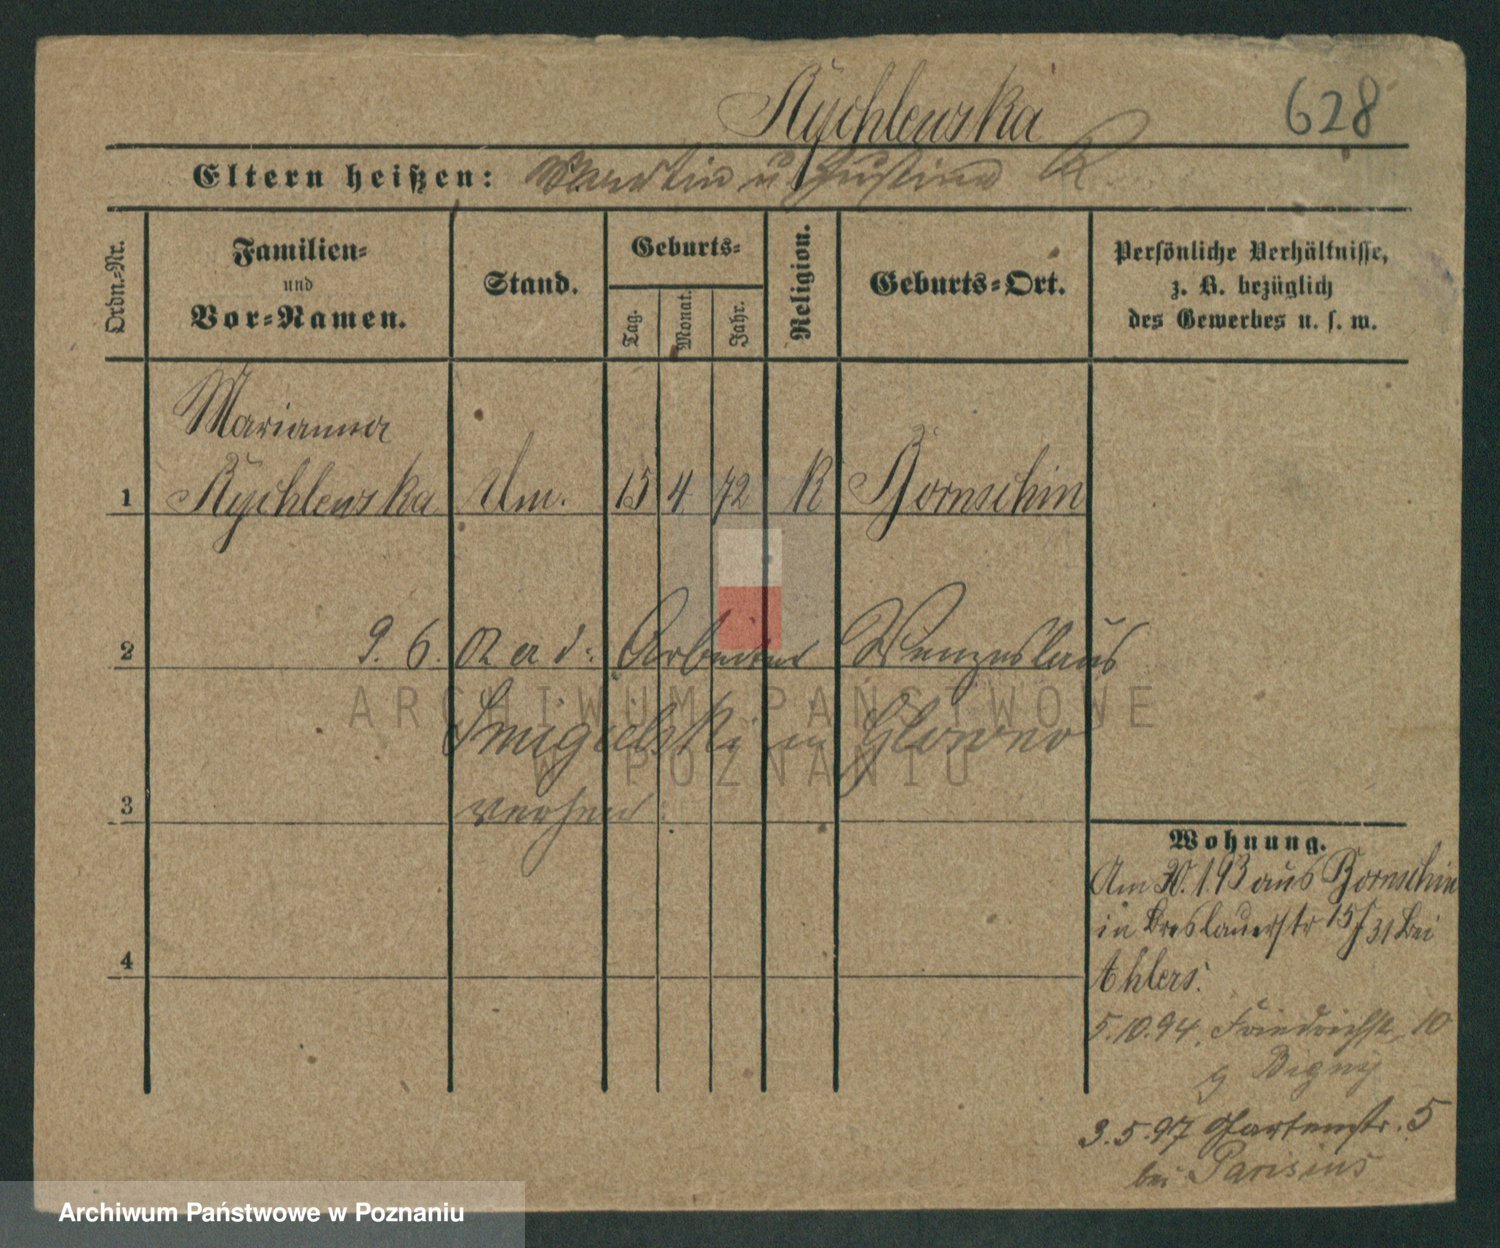 Rychlewska 628
Eltern heißen: Martin u Justina R
Ordn.-Nr.
Familien-
und
Vor-Namen.
Stand.
Geburts-
Tag.
Monat.
Jahr.
Religion.
Geburts-Ort.
Persönliche Verhältnisse,
z. B. bezüglich
des Gewerbes u. s. w.
Marianna
1 Rychlewska Um. 15 4 72 K Bornschin
2 9. 6. 02 a d. Arbeiter Wenzeslaus
Smigielski in Glowno
3 verh
4
Wohnung.
Am 30.1.93 aus Bornschin
in Breslauerstr 15/31 bei
Ahlers.
5.10.94. Friedrichstr. 10
3.5.97. Gartenstr. 5
bei Parisius
ARCHIWUM PAŃSTWOWE
W POZNANIU
Archiwum Państwowe w Poznaniu